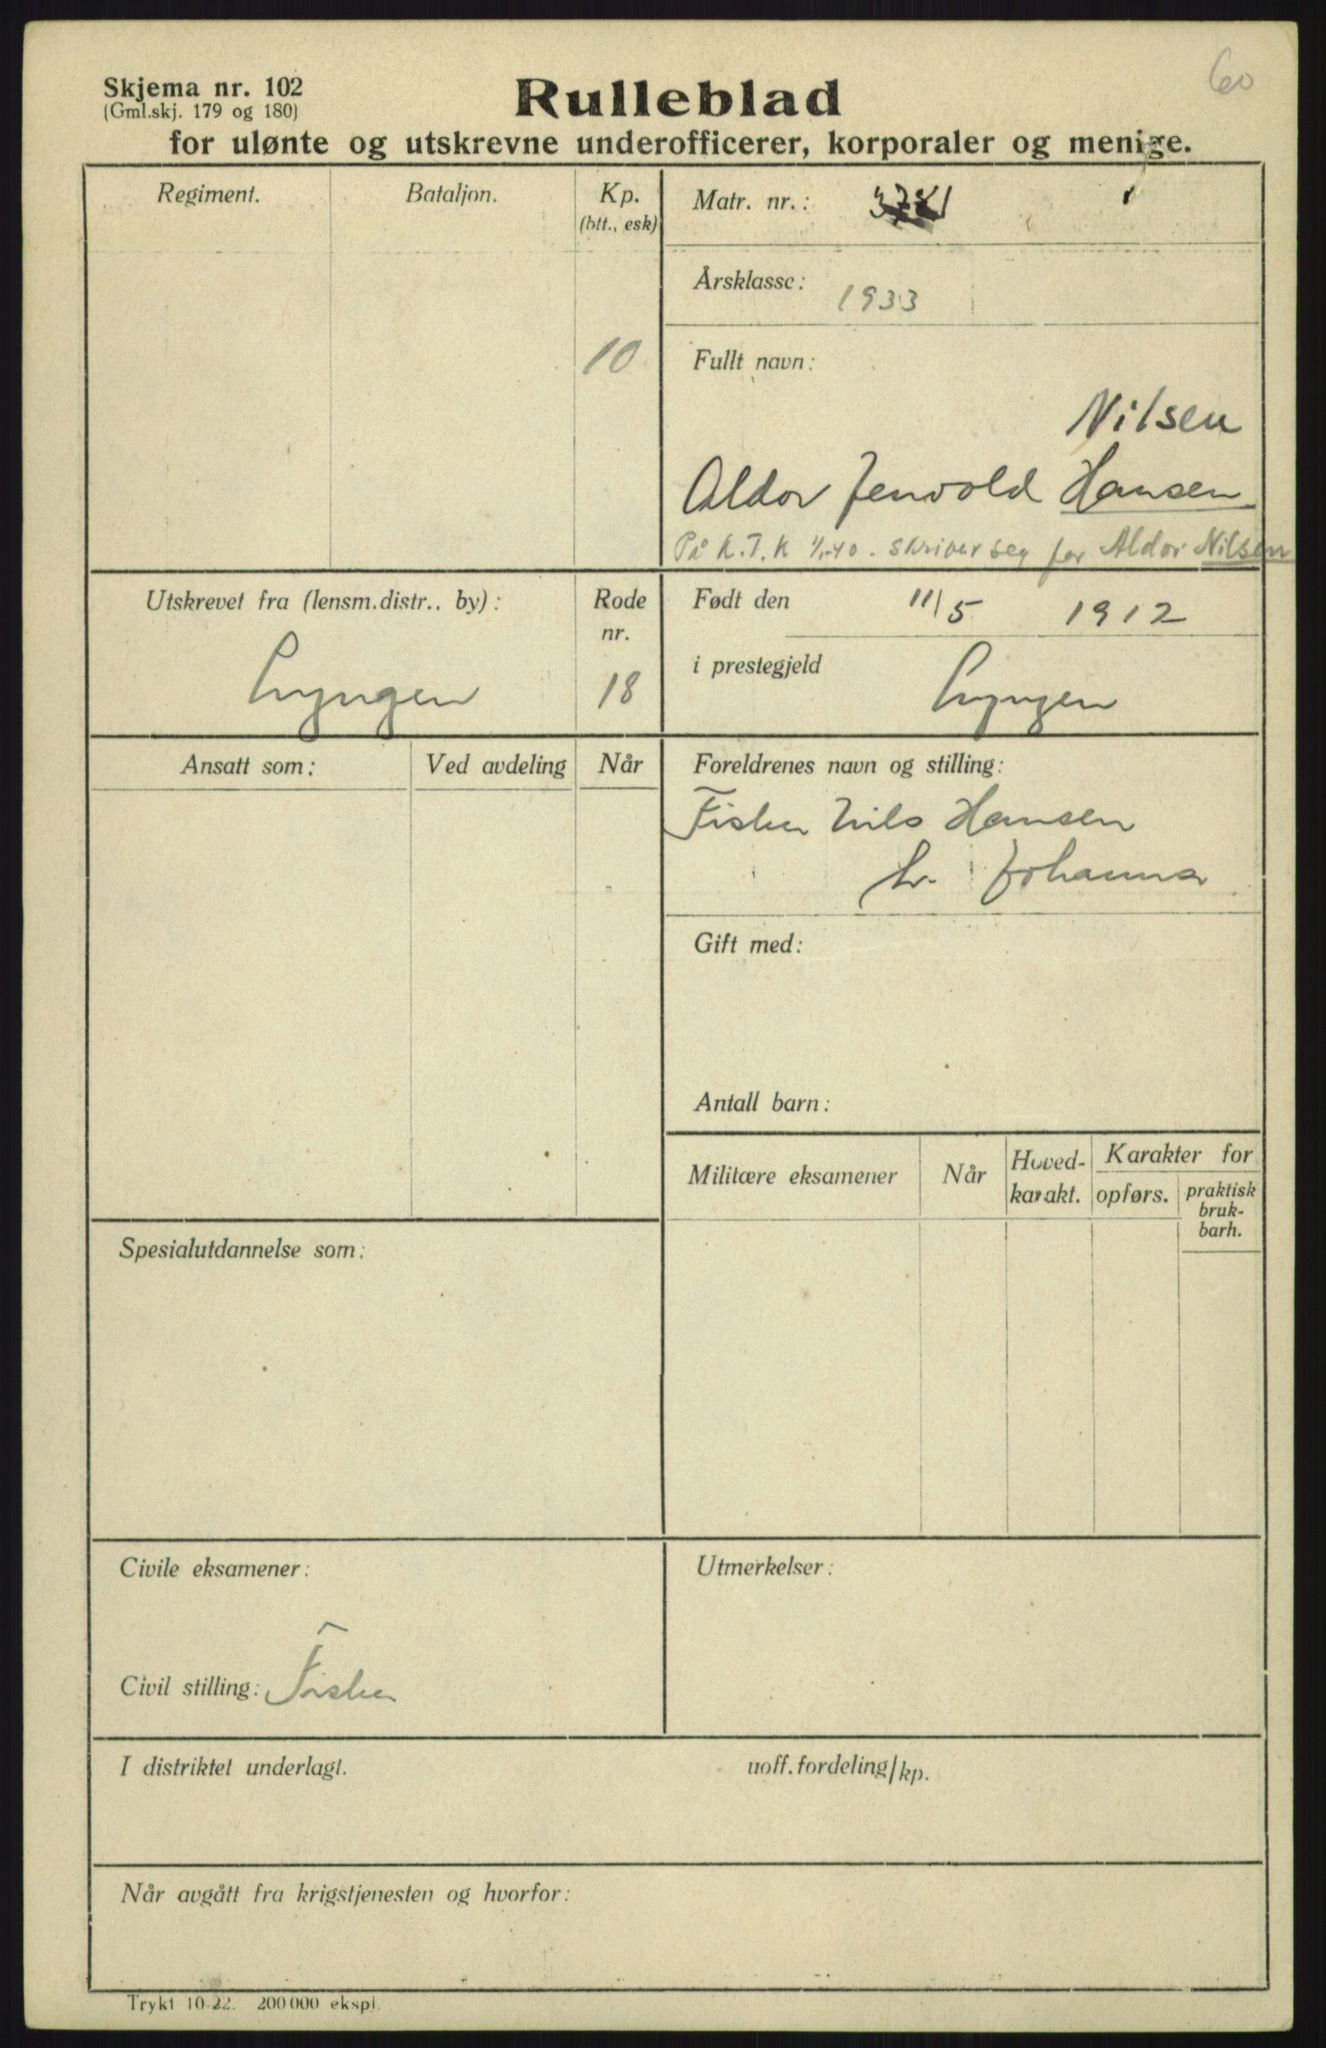 60
Skjema nr. 102
(Gml.skj. 179 og 180)
Rulleblad
for ulønte og utskrevne underofficerer, korporaler og menige.
Regiment.
Bataljon.
Kp.
(btt., esk)
10
Matr. nr.:
Årsklasse: 1933
Fullt navn:
Nilsen
Aldor Jenvold Hansen
På K.T.K 1/1-40. skriver seg for Aldor Nilsen
Utskrevet fra (lensm.distr.. by):
Lyngen
Rode
nr.
18
Født den 11/5 1912
i prestegjeld Lyngen
Ansatt som:
Ved avdeling
Når
Foreldrenes navn og stilling:
Fisker Nils Hansen
h. Johanna
Gift med:
Antall barn:
Militære eksamener
Når
Hoved-
karakt.
Karakter for
opførs.
praktisk
bruk-
barh.
Spesialutdannelse som:
Civile eksamener:
Civil stilling: Fisker
Utmerkelser:
I distriktet underlagt.
uoff. fordeling/kp.
Når avgått fra krigstjenesten og hvorfor:
Trykt 10-22. 200 000 ekspl.